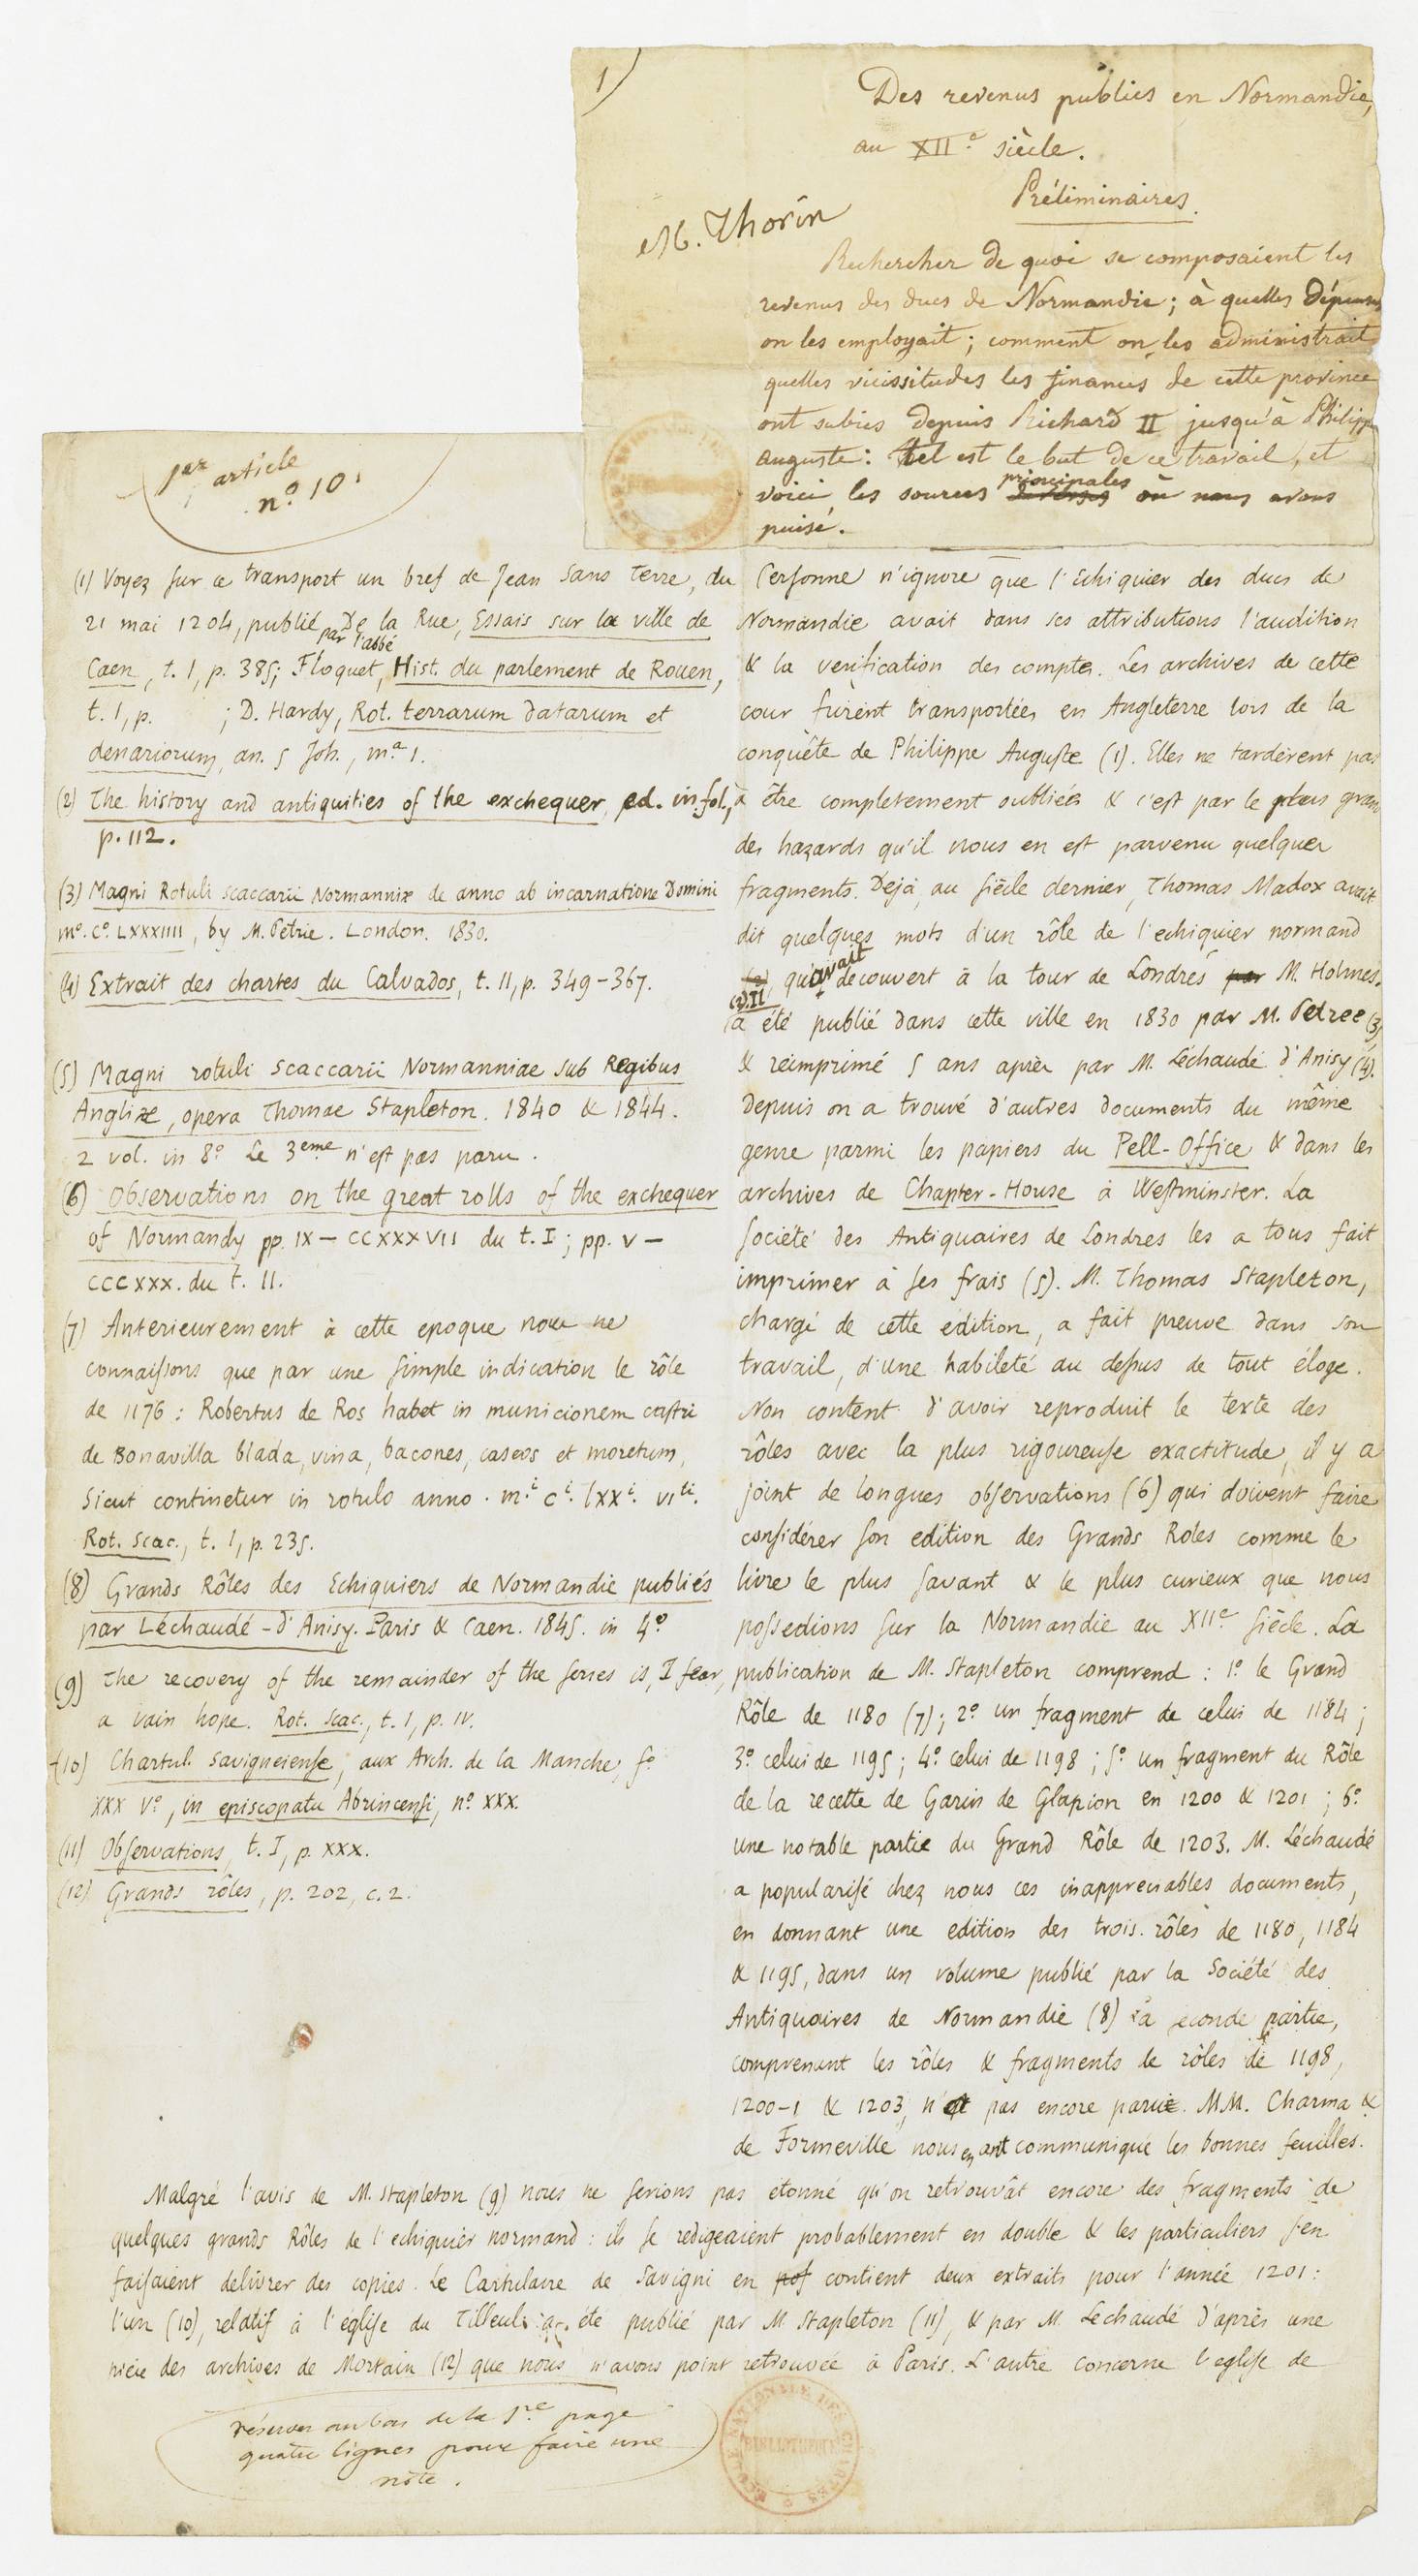 1)
Des revenus publics en Normandie,
au XIIe siècle.
Préliminaires.
M. Thorin
Rechercher de quoi se composaient les
revenus des ducs de Normandie; à quelles dépenses
on les employait; comment on les administrait
quelles vicissitudes les finances de cette province
ont subies depuis Richard II jusqu'à Philippe
auguste: tel est le but de ce travail, et
voici les sources principales où nous avons
puisé.
1er article
n.o 10.
(1) Voyez sur ce transport un bref de Jean Sans Terre, du
21 mai 1204, publié par l'abbé De la Rue, Essais sur la ville de
Caen, t. I, p. 385; Floquet, Hist. du parlement de Rouen,
t. I, p. ; D. Hardy, Rot. terrarum datarum et
denariorum, an. 5 Joh., m.a 1.
(2) The history and antiquities of the exchequer, ed. in fol.,
p. 112.
(3) Magni Rotuli scaccarii Normanniæ de anno ab incarnatione Domini
mo. Co. LXXXIIII, by M. Petrie. London. 1830.
(4) Extrait des chartes du Calvados, t. II, p. 349-367.
(5) Magni rotuli scaccarii Normanniae sub Regibus
Angliæ, opera Thomae Stapleton. 1840 & 1844.
2 vol. in 8o Le 3eme n'est pas paru.
(6) Observations on the great rolls of the exchequer
of Normandy pp. IX - CCXXXVII du t. I; pp. V -
CCCXXX. du t. II.
(7) Anterieurement à cette epoque nous ne
connaissons que par une simple indication le rôle
de 1176: Robertus de Ros habet in municionem castri
de Bonavilla blada, vina, bacones, caseos et moretum,
sicut continetur in rotulo anno. m.i c.i lxx.i vi.ti
Rot. scac., t. I, p. 235.
(8) Grands Rôles des Echiquiers de Normandie publiés
par Léchaudé-d'Anisy. Paris & Caen. 1845. in 4o
(9) The recovery of the remainder of the series is, I fear,
a vain hope. Rot. scac., t. I, p. IV.
(10) Chartul. Savigneiense, aux Arch. de la Manche, fo
XXX Vo, in episcopatu Abrincensi, no XXX.
(11) Observations, t. I, p. XXX.
(12) Grands rôles, p. 202, c. 2.
Personne n'ignore que l'Echiquier des ducs de
Normandie avait dans ses attributions l'audition
& la verification des comptes. Les archives de cette
cour furent transportées en Angleterre lors de la
conquête de Philippe Auguste (1). Elles ne tardèrent pas
à être completement oubliées & c'est par le plus grand
des hazards qu'il nous en est parvenu quelques
fragments. Dejà, au siècle dernier, Thomas Madox avait
dit quelques mots d'un rôle de l'echiquier normand
(2), qu'avait decouvert à la tour de Londres par M. Holmes.
(2). Il
a été publié dans cette ville en 1830 par M. Petree (3)
& reimprimé 5 ans après par M. Léchaudé d'Anisy (4).
Depuis on a trouvé d'autres documents du même
genre parmi les papiers du Pell-Office & dans les
archives de Chapter-House à Westminster. La
Société des Antiquaires de Londres les a tous fait
imprimer à ses frais (5). M. Thomas Stapleton,
chargé de cette édition, a fait preuve dans son
travail, d'une habileté au dessus de tout éloge.
Non content d'avoir reproduit le texte des
rôles avec la plus rigoureuse exactitude, il y a
joint de longues observations (6) qui doivent faire
considérer son edition des Grands Roles comme le
livre le plus savant & le plus curieux que nous
possedions sur la Normandie au XIIe siècle. La
publication de M. Stapleton comprend: 1o le Grand
Rôle de 1180 (7); 2o un fragment de celui de 1184;
3o celui de 1195; 4o celui de 1198; 5o un fragment du Rôle
de la recette de Garin de Glapion en 1200 & 1201; 6o
une notable partie du Grand Rôle de 1203. M. Léchaudé
a popularisé chez nous ces inappreciables documents,
en donnant une edition des trois rôles de 1180, 1184
& 1195, dans un volume publié par la Société des
Antiquaires de Normandie (8) La seconde partie,
comprenant les rôles & fragments de rôles de 1198,
1200-1 & 1203, n'est pas encore parue. MM. Charma &
de Formeville nous en ont communiqué les bonnes feuilles.
Malgré l'avis de M. Stapleton (9) nous ne serions pas étonné qu'on retrouvât encore des fragments de
quelques grands Rôles de l'echiquier normand: ils se redigeaient probablement en double & les particuliers s'en
faisaient delivrer des copies. Le Cartulaire de Savigni en contient deux extraits pour l'année 1201:
l'un (10), relatif à l'église du Tilleul a été publié par M. Stapleton (11), & par M. Lechaudé d'après une
pièce des archives de Mortain (12) que nous n'avons point retrouvée à Paris. L'autre concerne l'eglise de
réserver au bas de la 1re page
quatre lignes pour faire une
note.